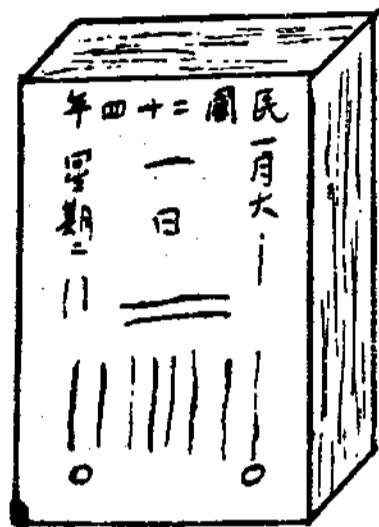 民國二十四年
一月大
一日
星期二